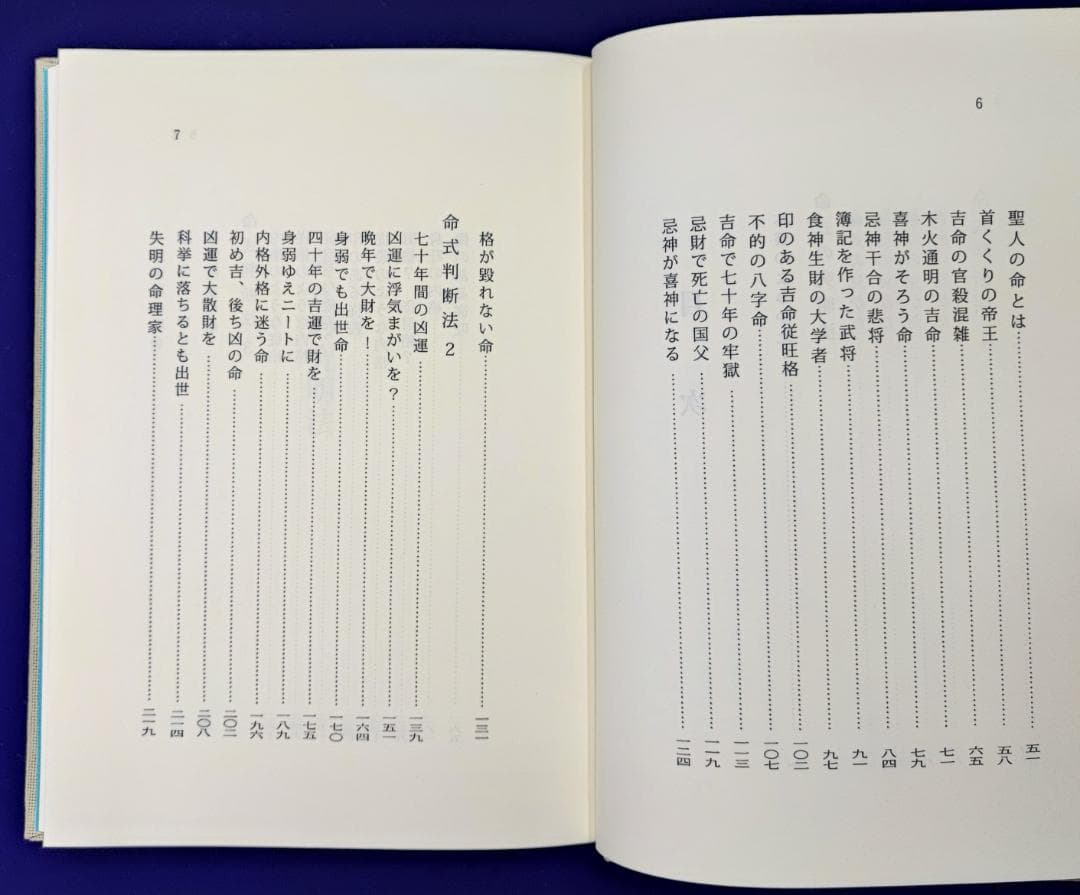 6
聖人の命とは……五一
首くくりの帝王……五八
吉命の官殺混雑……六五
木火通明の吉命……七一
喜神がそろう命……七九
忌神干合の悲将……八四
簿記を作った武将……九一
食神生財の大学者……九七
印のある吉命従旺格……一〇二
不的の八字命……一〇七
吉命で七十年の牢獄……一一三
忌財で死亡の国父……一一九
忌神が喜神になる……一二四
7
格が毀れない命……一三一
命式判断法 2
七十年間の凶運……一三九
凶運に浮気まがいを?……一五一
晩年で大財を!……一六四
身弱でも出世命……一七〇
四十年の吉運で財を……一七五
身弱ゆえニートに……一八九
内格外格に迷う命……一九六
初め吉、後ち凶の命……二〇二
凶運で大散財を……二〇八
科挙に落ちるとも出世……二一四
失明の命理家……二一九